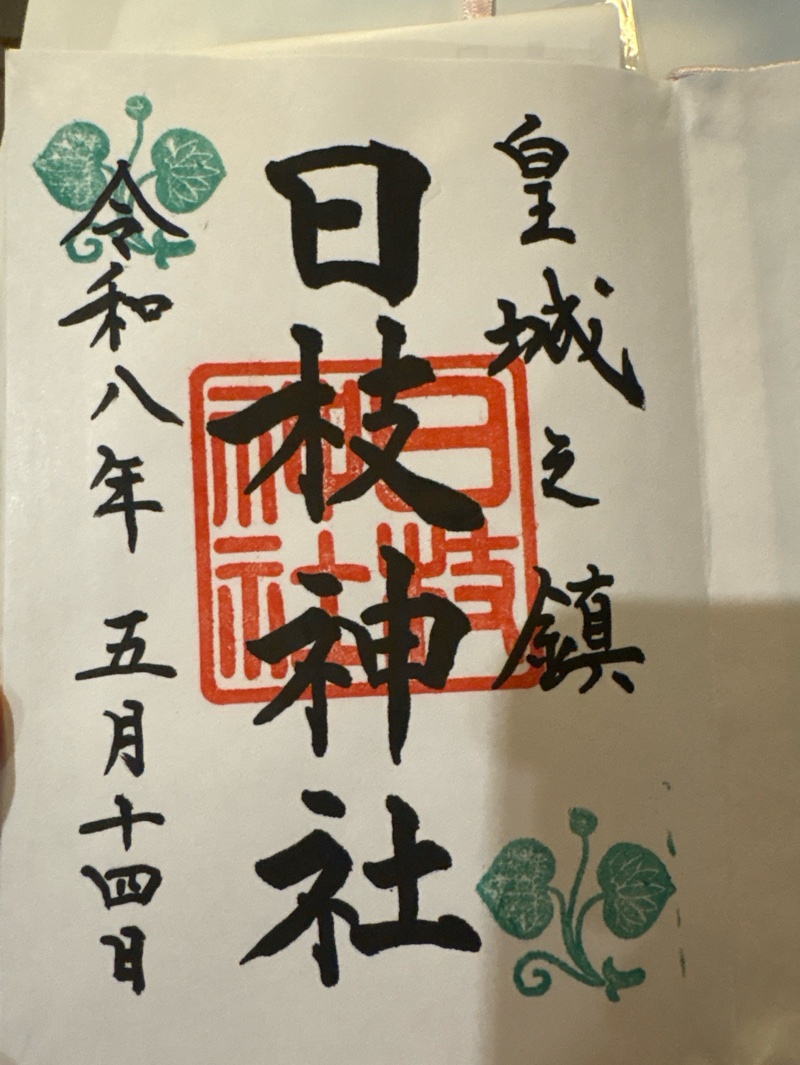 皇城之鎮
日枝神社
日枝神社
令和八年 五月十四日